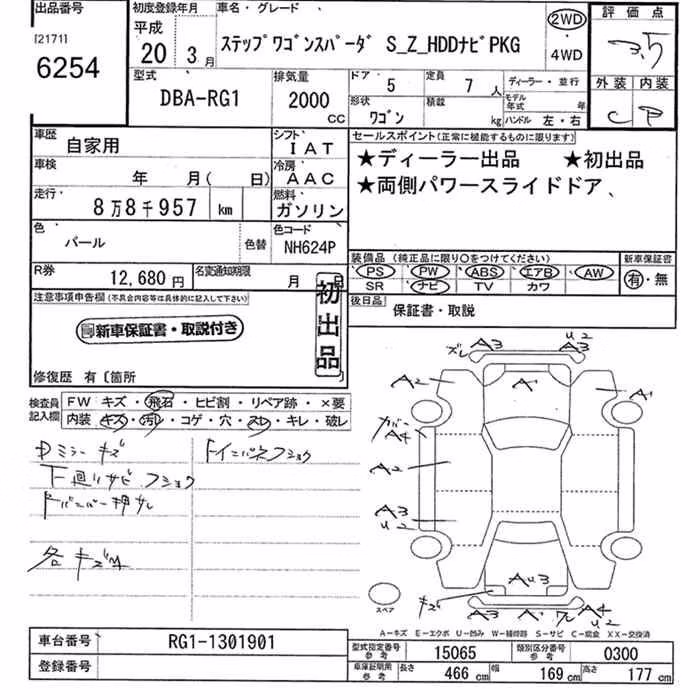 出品番号
[2171]
6254
初度登録年月
平成
20年 3月
車名・グレード
ステップワゴンスパーダ S_Z_HDDナビPKG
2WD
4WD
評価点
3.5
外装 内装
C
型式
DBA-RG1
排気量
2000
CC
ドア・ 5
定員 7 人
形状 ワゴン
積載 kg
ディーラー・並行
モデル年式 年
ハンドル 左・右
車歴
自家用
シフト
IAT
車検
年 月( 日)
冷房
AAC
走行・
8万8千957 km
燃料
ガソリン
色・
パール
色替
色コード
NH624P
R券
12,680円
名変通知期限
月 日
セールスポイント(正常に機能するものに限ります)
★ディーラー出品 ★初出品
★両側パワースライドドア、
装備品(純正品に限り○をつけてください)
PS PW ABS エアB AW
SR ナビ TV カワ
新車保証書
有・無
後日品
保証書・取説
注意事項申告欄(不具合内容等は具体的に記入して下さい)
新車保証書・取説付き
初出品
修復歴 有〔箇所
検査員記入欄
FW キズ・飛石・ヒビ割・リペア跡・×要
内装 キズ・汚レ・コゲ・穴・スレ・キレ・破レ
Dミラーキズ
下廻りサビ、フショク
ドバンパー押サレ
各キズ
トインパネフショク
ズレ A3
U2
A3
A2
A'
A'
カバー
A4
A2
A3
U2
AU3
キズ
A3
A'
ワレ
A4
U2
スペア
A−キズ E−エクボ U−凹み W−補修跡 S−サビ C−腐食 XX−交換済
車台番号
RG1-1301901
登録番号
型式指定番号
参考
15065
類別区分番号
参考
0300
車庫証明用
参考
長さ 466 cm 幅 169 cm 高さ 177 cm